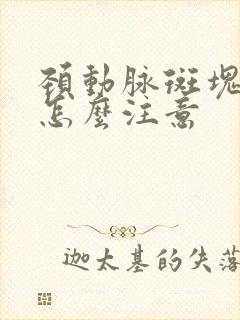 頸動脈斑塊
怎麼注意
迦太基的失落